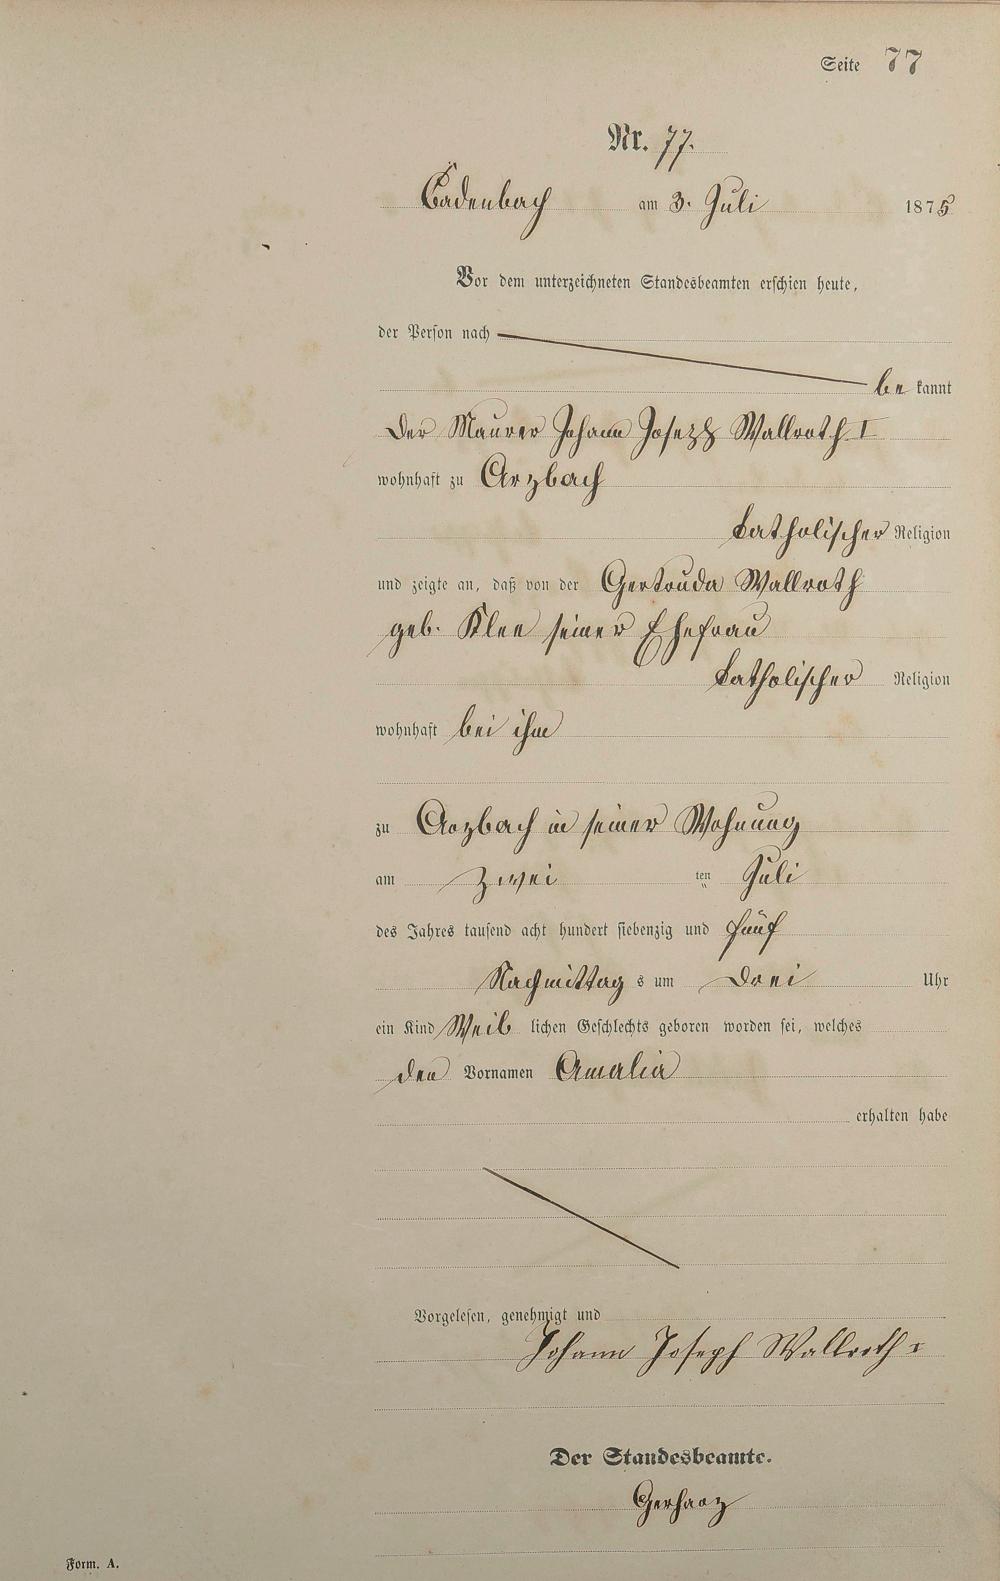 Seite 77
Nr. 77.
Cadenbach am 3. Juli 1875
Vor dem unterzeichneten Standesbeamten erschien heute,
der Person nach
be kannt
Der Maurer Johann Joseph Wallroth I
wohnhaft zu Arzbach
katholischer Religion
und zeigte an, daß von der Gertruda Wallroth
geb. Klee seiner Ehefrau
katholischer Religion
wohnhaft bei ihm
zu Arzbach in seiner Wohnung
am zwei ten Juli
des Jahres tausend acht hundert siebenzig und fünf
Nachmittag s um Drei Uhr
ein Kind Weib lichen Geschlechts geboren worden sei, welches
den Vornamen Amalia
erhalten habe
Vorgelesen, genehmigt und
Johann Joseph Wallroth I
Der Standesbeamte.
Gerharz
Form. A.